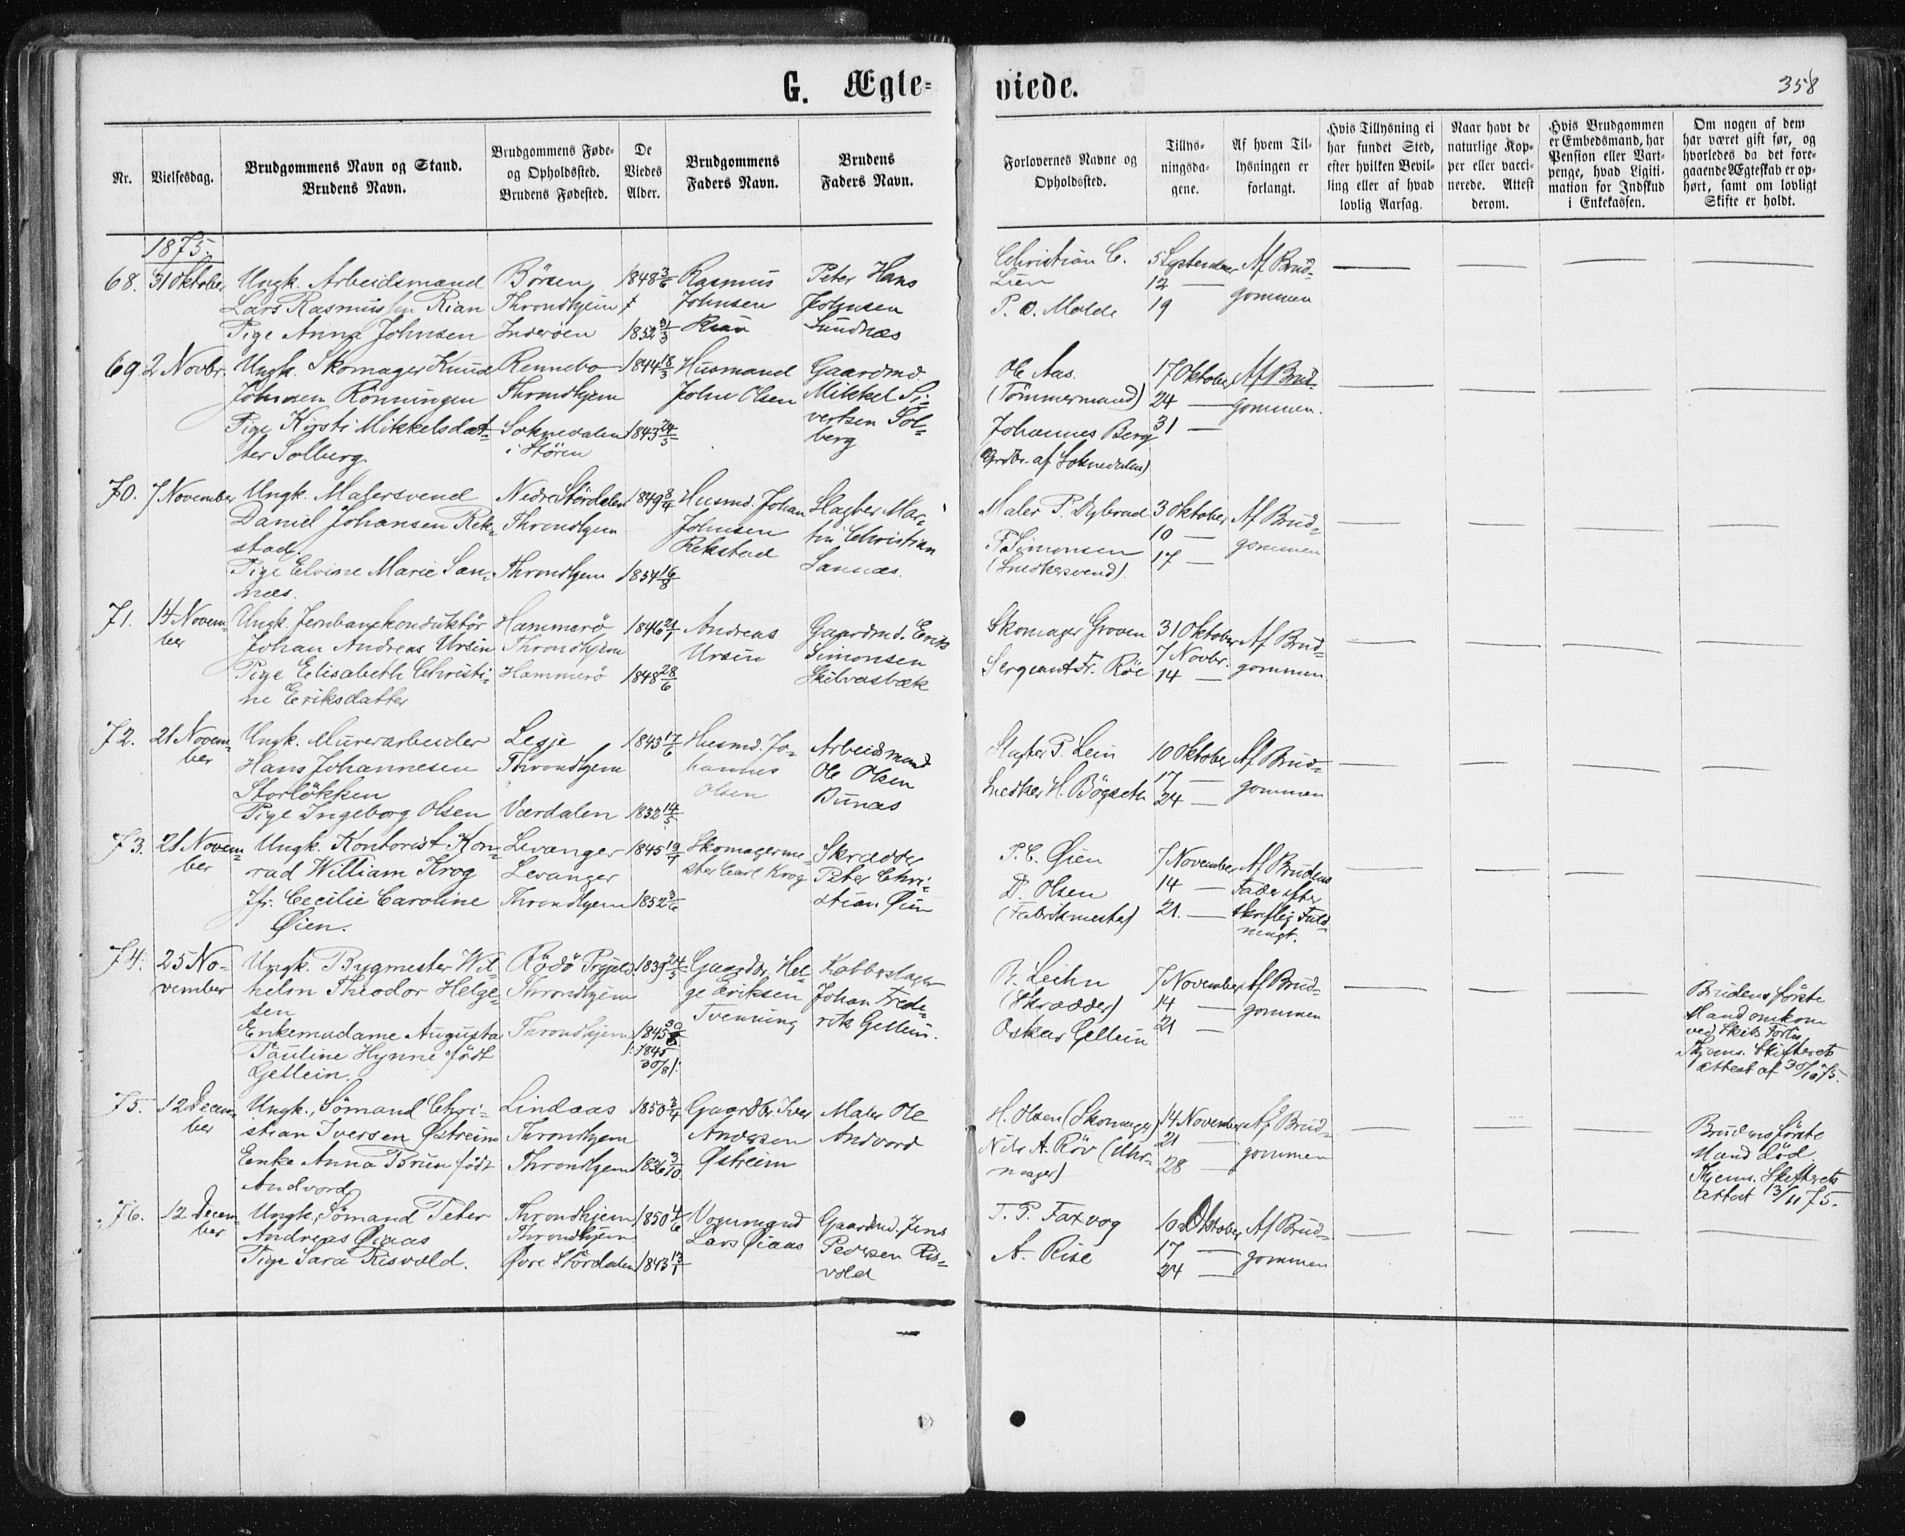 G. Ægte=
viede.
358
Nr.
Vielsesdag.
Brudgommens Navn og Stand.
Brudens Navn.
Brudgommens Føde=
og Opholdssted.
Brudens Fødested.
De
Viedes
Alder.
Brudgommens
Faders Navn.
Brudens
Faders Navn.
Forlovernes Navne og
Opholdssted.
Tillys=
ningsda=
gene.
Af hvem Til=
lysningen er
forlangt.
Hvis Tillysning ei
har fundet Sted,
efter hvilken Bevil=
ling eller af hvad
lovlig Aarsag.
Naar havt de
naturlige Kop=
per eller vacci=
nerede. Attest
derom.
Hvis Brudgommen
er Embedsmand, har
Pension eller Vart=
penge, hvad Ligiti=
mation for Indskud
i Enkekassen.
Om nogen af dem
har været gift før, og
hvorledes da det fore=
gaaende Ægteskab er op=
hørt, samt om lovligt
Skifte er holdt.
1875.
68.
31 Oktober
Ungk. Arbeidsmand
Lars Rasmussen Rian
Pige Anna Johnsen
Børsen
Throndhjem
Inderøen
1848 3/6
1852 31/3
Rasmus
Johnsen
Rian
Peter Hans
Johnsen
Sundnæs
Christian C.
Lien
P. O. Molde
5 September
12 —
19
Af Brud=
gommen
69.
2 Novbr.
Ungk. Skomager Knud
Johnsen Rönningen
Pige Kirsti Mikkelsdat=
ter Solberg.
Rennebo
Throndhjem
Soknedalen
i Stören
1844 18/3
1843 24/5
Husmand
John Olsen
Gaardmd.
Mikkel Si=
vertsen Sol=
berg
Ole Aas.
(Tömmermand)
Johannes Berg
(Grdbr. af Soknedalen)
17 Oktober
24 —
31 —
Af Brud=
gommen.
70.
7 November
Ungk. Malersvend
Daniel Johansen Rek=
stad.
Pige Elvine Marie San=
næs.
Nedre Stördalen
Throndhjem
Throndhjem
1849 8/4
1854 16/8
Husmd. Johan
Johnsen
Rekstad
Slagter Mar=
tin Christian
Sannæs.
Maler P. Dybvad
F. Simonsen
(Snedkersvend).
3 Oktober
10 —
17 —
Af Brud=
gommen
71.
14 Novem=
ber
Ungk. Jernbanekonduktör
Johan Andreas Ursin
Pige Elisabeth Christi=
ne Eriksdatter
Hammerö
Throndhjem
Hammerö
1846 21/1
1848 28/6
Andreas
Ursin
Gaardmd. Erik
Simonsen
Skilvasbæk
Skomager Groven
Sergeant Fr. Röe
31 Oktober
7 Novbr.
14 —
Af Brud=
gommen
72.
21 Novem=
ber
Ungk. Murerarbeider
Hans Johannesen
Storlökken
Pige Ingeborg Olsen
Lesje
Throndhjem
Værdalen
1843 17/6
1832 14/5
Husmd. Jo=
hannes
Olsen
Arbeidsmand
Ole Olsen
Bunæs
Slagter P. Lein
Snedker H. Bögseth
10 Oktober
17 —
24 —
Af Brud=
gommen
73.
21 Novem=
ber
Ungk. Kontorist Kon=
rad William Krog
Jfr. Cecilie Caroline
Øien.
Levanger
Levanger
Throndhjem
1845 19/7
1852 3/6
Skomagerme=
ster Carl Krog
Skrædder
Peter Chri=
stian Øien
P. C. Øien
D. Olsen
(Fabrikmester)
7 November
14 —
21. —
Af Brudens
Fader efter
skriftlig Fuld=
magt.
74.
25 No=
vember
Ungk. Bygmester Wil=
helm Theodor Helge=
sen
Enkemadame Augusta
Pauline Hynne født
Gellein.
Rödö Prgjeld
Throndhjem
Throndhjem
1839 24/5
1845 30/8
/: 1845
30/8 :/
Gaardbr. Hel=
ge Eriksen
Tvenning
Kobberslager
Johan Frede=
rik Gellein.
R. Leihn
(Skrædder)
Oskar Gellein
7 November
14 —
21 —
Af Brud=
gommen
Brudens förste
Mand omkom
ved Skibs Forlis
Thjems. Skifterets
attest af 30/10 75.
75.
12 Decem=
ber
Ungk., Sömand Chri=
stian Iversen Østreim
Enke Anna Brun född
Andvord
Lindaas
Throndhjem
Throndhjem
1850 3/4
1826 3/10
Gaardbr. Iver
Andersen
Østreim
Maler Ole
Andvord
H. Olsen (Skomager)
Nils A. Röv (Uhr=
mager)
14 November
21 —
28 —
Af Brud=
gommen
Brudens förste
Mand död.
Thjems. Skifterets
attest 13/11 75.
76.
12 Decem=
ber
Ungk., Sömand Peter
Andreas Øiaas
Pige Sara Risvold.
Throndhjem
Throndhjem
Øvre Stördalen
1850 4/6
1843 13/1
Vognmand
Lars Øiaas
Gaardmd. Jens
Pedersen Ris=
vold
T. P. Faxvog
A. Rise
10 Oktober
17 —
24 —
Af Brud=
gommen